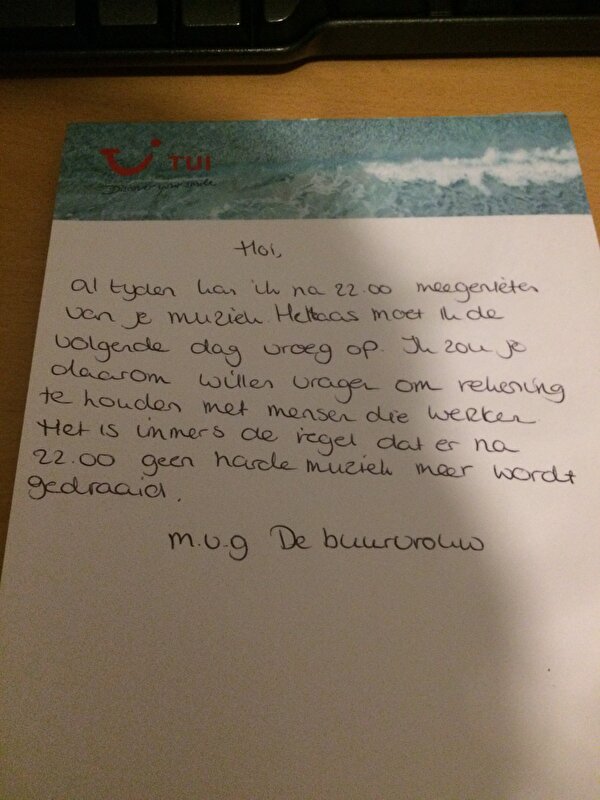 TUI
Discover your smile
Hoi,
al tyden kan ik na 22.00 meegenieten
van je muziek. Hellaas moet ik de
volgende dag vroeg op. Ik zou je
daarom willen vragen om rekening
te houden met mensen die werken
Het is immers de regel dat er na
22.00 geen harde muziek meer wordt
gedraaid.
m.v.g De buurvrouw